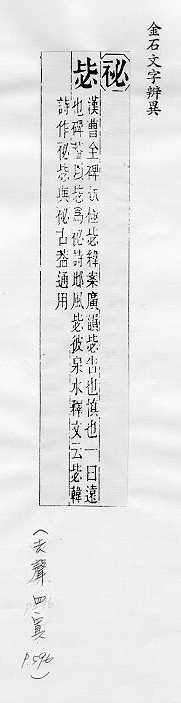 金石文字辨異
祕
毖
漢曹全碑甄極毖緯案廣韻毖告也慎也一曰遠
也碑葢以毖爲祕詩邶風毖彼泉水釋文云毖韓
詩作祕毖與祕古葢通用
(去聲 四 寘 P.596)